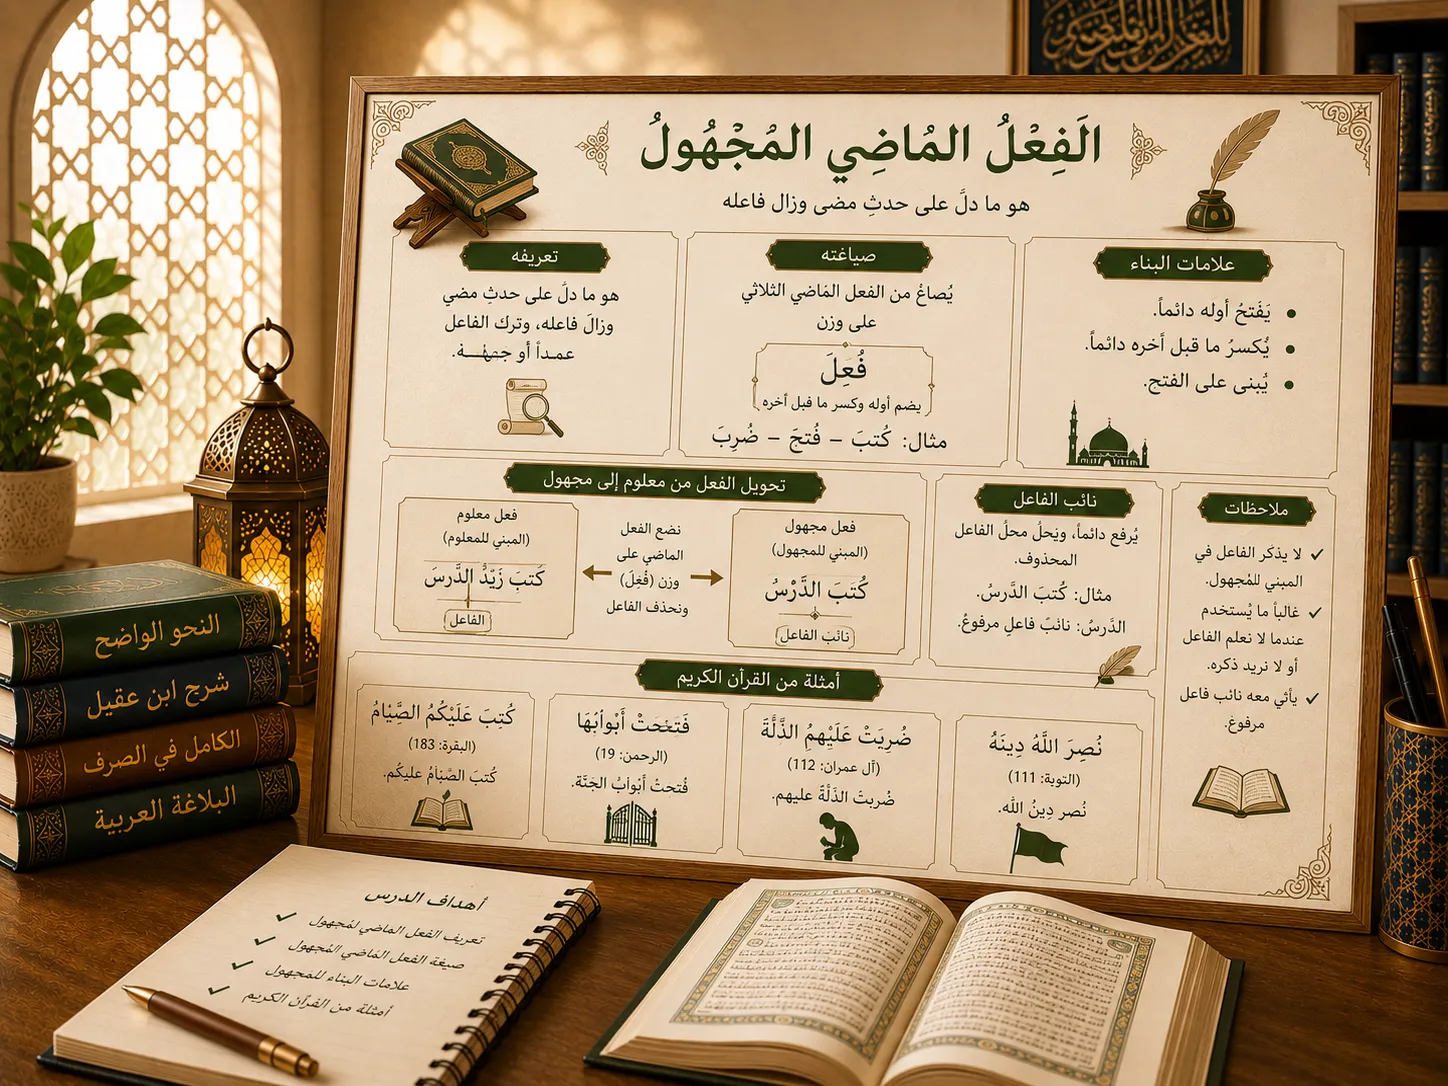 الَفِعْلُ المُاضِي المُجْهُولُ
هو ما دلَّ على حدثِ مضى وزال فاعله
علامات البناء
يَفَتحُ أوله دائماً.
يُكسرُ ما قبل أخره دائماً.
يُبنى على الفتح.
صياغته
يُصاغُ من الفعل المُاضي الثلاثي
على وزن
فُعَِلَ
يضم أوله وكسر ما قبل أخره
مثال: كُتبَ – فُتجَ – ضُربَ
تعريفه
هو ما دلَّ على حدثِ مضي
وزالَ فاعله، وترك الفاعل
عمداً أو
تحويل الفعل من معلوم إلى مجهول
فعل مجهول
(المبني للمجهول)
كُتَبَ الدَّرْسُ
نائبَ الفاعل
نضع الفعل
الماضي على
وزن (فُعِلَ)
ونحذف الفاعل
فعل معلوم
(المبني للمعلوم)
كُتبَ زَيْدُ الدَّرسَ
الفاعل
نائب الفاعل
يُرفع دائماً، ويَحلُ محلُ الفاعل
المحذوف.
مثال: كُتبَ الدَّرسُ.
الدَّرسُ: نائبَ فاعلِ مرفوعُ.
ملاحظات
لا يذكر الفاعل في
المبني للمُجهول.
غالباً ما يُستخدم
عندما لا نعلم الفاعل
أو لا نريد ذكره.
يأثي معه نائب فاعل
مرفوعَ.
أمثلة من القرآن الكريم
نُصِرَ اللَّهُ دِينَهُ
(التوبة: 111)
نُصر دِينُ الله.
ضُرِبَتْ عَلَيْهِمُ الذَّلَّةَ
(آل عمران: 112)
ضُربتَ الذَلَّةَ عليهم.
فَتَحَتْ أَبْوابُهَا
(الرحمن: 19)
فُتحتْ أَبْوابُ الجَنَّة.
كُتبَ عَلَيْكُمُ الصَّيْامُ
(البقرة: 183)
كُتبَ الصَّيَامُ عليكم.
النحو الواضح
شرح ابن عقيل
الكامل في الصرف
البلاغة العربية
أهداف الدرس
تعريف الفعل الماضي لمُجهول
صيغة الفعل المُاضي المُجهول
علامات البناء للمَجهول
أمثلة من القرآن الكريم